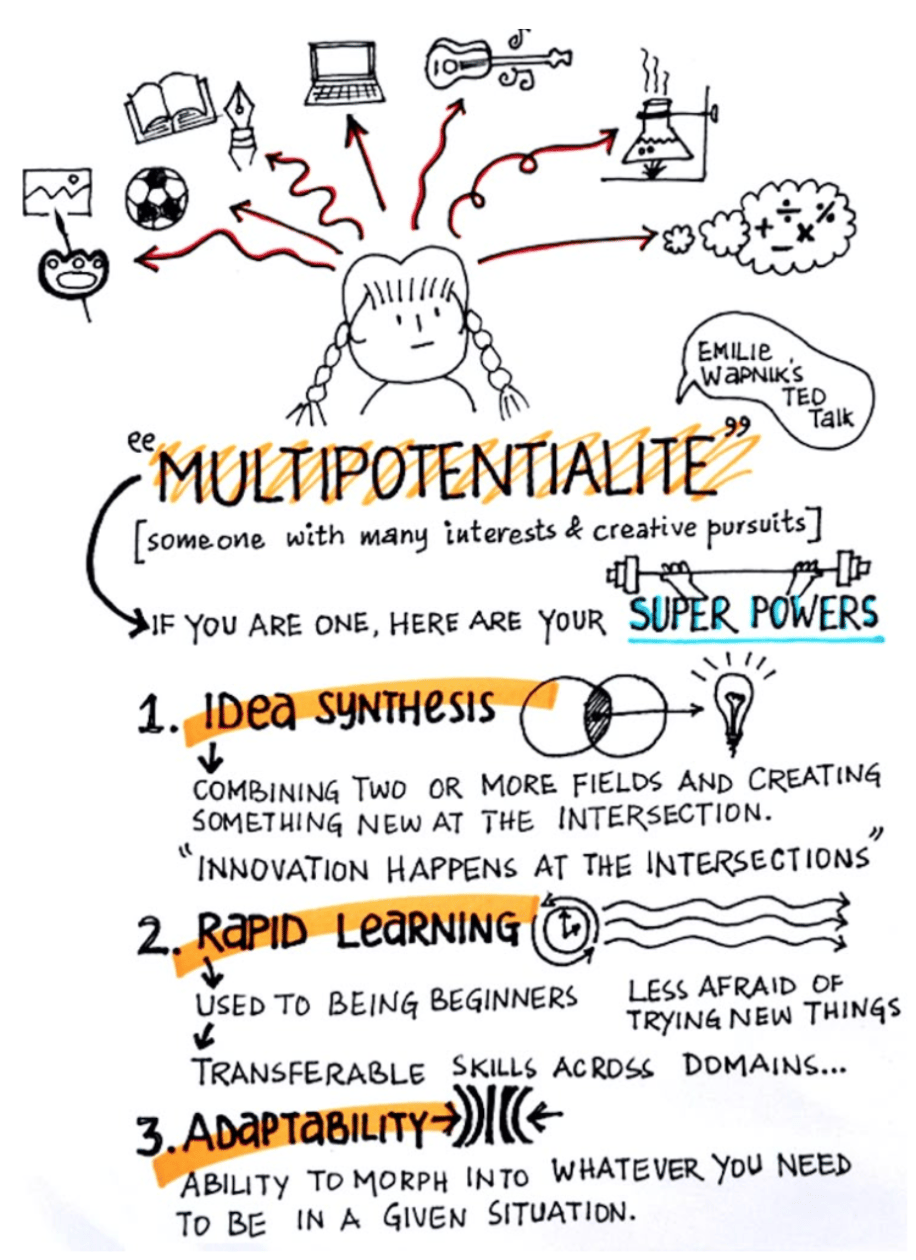 EMILIE
WAPNIK'S
TED
Talk
"MULTIPOTENTIALITE"
[someone with many interests & creative pursuits]
IF YOU ARE ONE, HERE ARE YOUR SUPER POWERS
1. IDea SYNTHesis
COMBINING TWO OR MORE FIELDS AND CREATING
SOMETHING NEW AT THE INTERSECTION.
"INNOVATION HAPPENS AT THE INTERSECTIONS"
2. RaPID LeaRNING
USED TO BEING BEGINNERS
LESS AFRAID OF
TRYING NEW THINGS
TRANSFERABLE SKILLS ACROSS DOMAINS...
3. ADaPTaBILITY
ABILITY TO MORPH INTO WHATEVER YOU NEED
TO BE IN A GIVEN SITUATION.